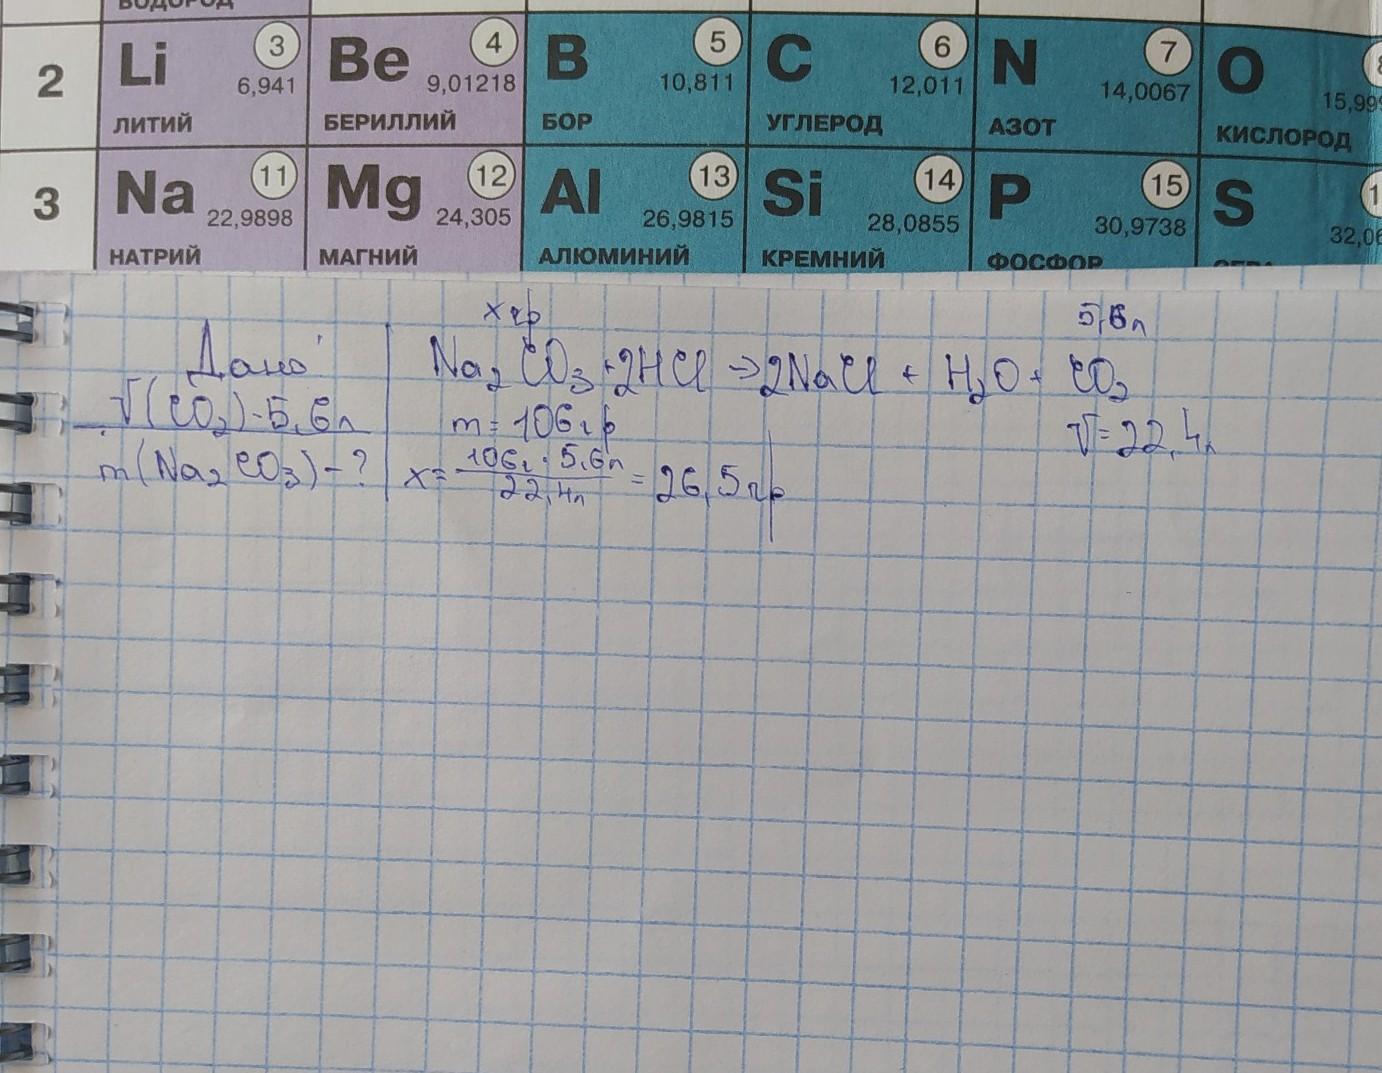 ВОДОРОД
2 Li 3 6,941 ЛИТИЙ Be 4 9,01218 БЕРИЛЛИЙ B 5 10,811 БОР C 6 12,011 УГЛЕРОД N 7 14,0067 АЗОТ O 8 15,999 КИСЛОРОД
3 Na 11 22,9898 НАТРИЙ Mg 12 24,305 МАГНИЙ Al 13 26,9815 АЛЮМИНИЙ Si 14 28,0855 КРЕМНИЙ P 15 30,9738 ФОСФОР S 32,06
Дано:
V(CO₂)-5,6л
m(Na₂CO₃)-?
xгр 5,6л
Na₂CO₃+2HCl→2NaCl + H₂O + CO₂
m=106гр V=22,4л
x= 106г·5,6л / 22,4л = 26,5гр